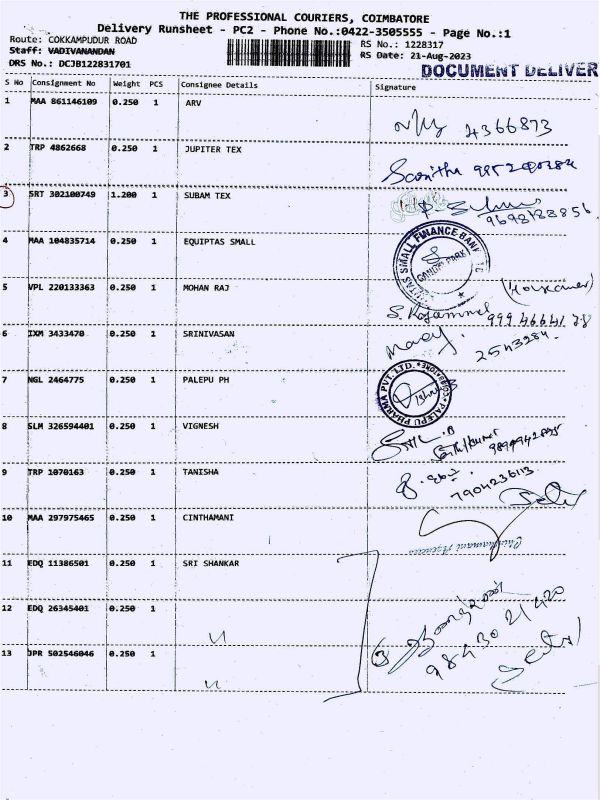 THE PROFESSIONAL COURIERS, COIMBATORE
Delivery Runsheet - PC2 - Phone No.:0422-3505555 - Page No.:1
Route: COKKAMPUDUR ROAD RS No.: 1228317
Staff: VADIVANANDAN RS Date: 21-Aug-2023
DRS No.: DCJB122831701 DOCUMENT DELIVER
S No Consignment No Weight PCS Consignee Details Signature
1 MAA 861146109 0.250 1 ARV
4366873
2 TRP 4862668 0.250 1 JUPITER TEX
3 SRT 302100749 1.200 1 SUBAM TEX
4 MAA 104835714 0.250 1 EQUIPTAS SMALL
SMALL FINANCE BANK
GANDHI PARK
5 VPL 220133363 0.250 1 MOHAN RAJ
6 IXM 3433470 0.250 1 SRINIVASAN
2543284
7 NGL 2464775 0.250 1 PALEPU PH
PALEPU PHARMA PVT. LTD.
8 SLM 326594401 0.250 1 VIGNESH
9 TRP 1070163 0.250 1 TANISHA
7904236113
10 MAA 297975465 0.250 1 CINTHAMANI
11 EDQ 11386501 0.250 1 SRI SHANKAR
12 EDQ 26345401 0.250 1
13 JPR 502546046 0.250 1
98430 21420